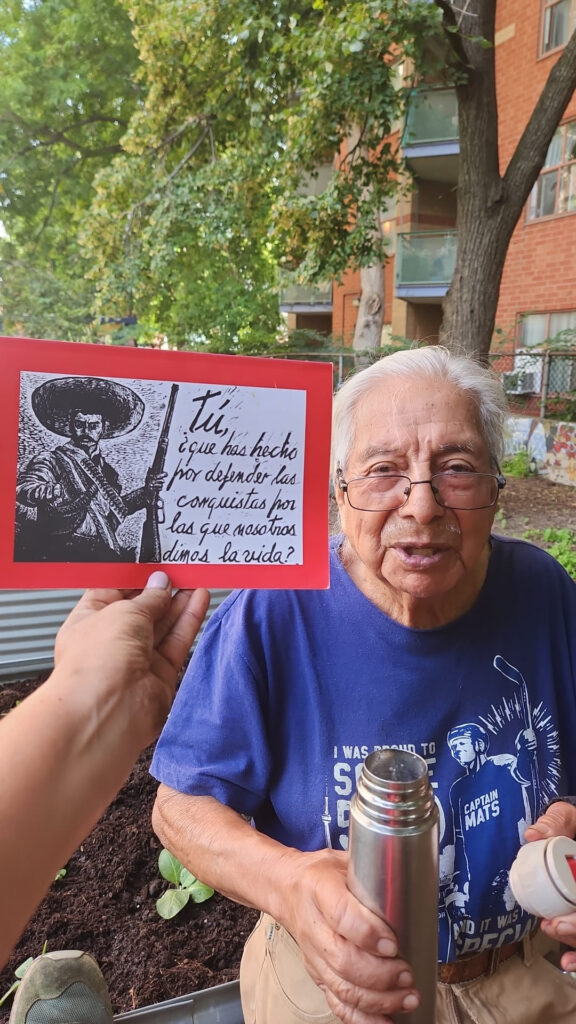 Tú,
¿que has hecho
por defender las
conquistas por
las que nosotros
dimos la vida?
I WAS PROUD TO
CAPTAIN
MATS
AND IT WAS
SPECIAL